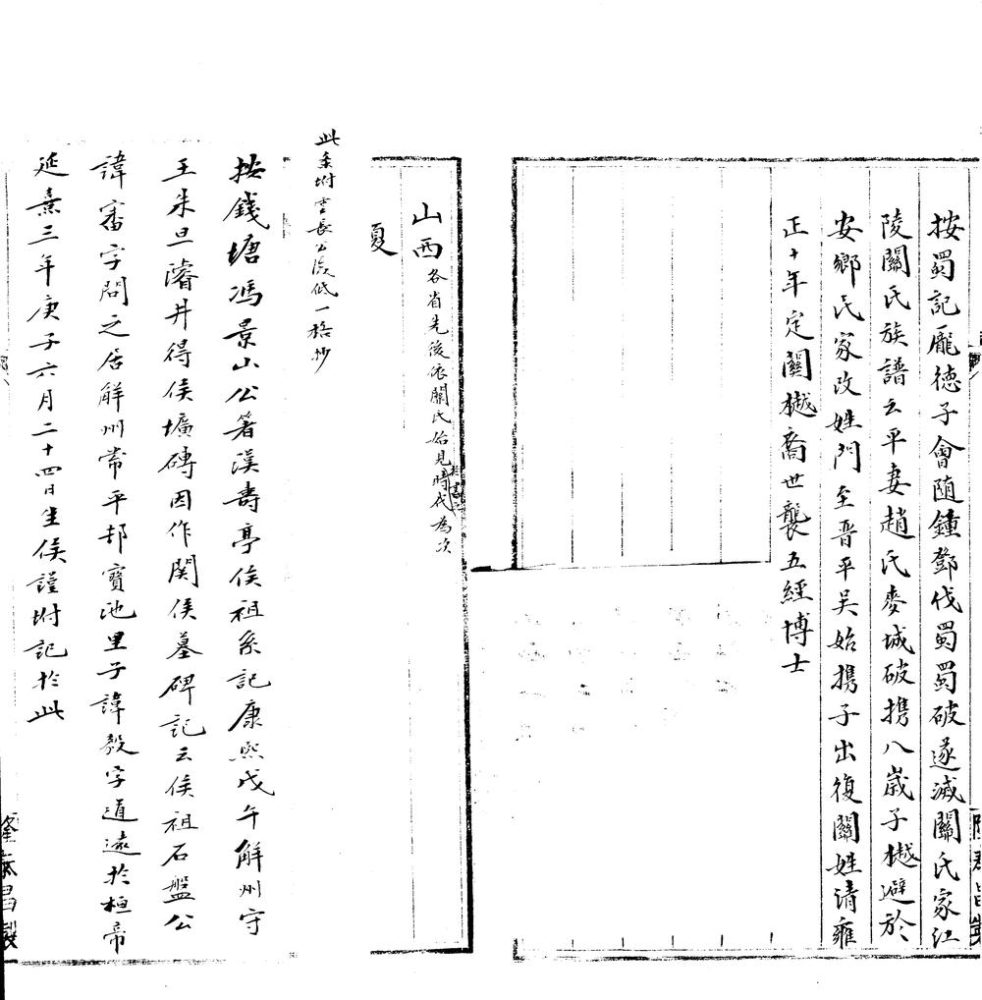 按蜀記龐德子會隨鍾鄧伐蜀蜀破遂滅關氏家江
陵關氏族譜云平妻趙氏麥城破携八歲子樾避於
安鄉氏家改姓門至晋平吴始携子出復關姓清雍
正十年定關樾裔世襲五經博士
山西各省先後依關氏始見時代為次
夏
此系坿書長公後低一格抄
按錢塘馮景山公著漢壽亭侯祖系記康熙戊午解州守
王朱旦濬井得侯壙磚因作関侯墓碑記云侯祖石盤公
諱審字問之居解州常平邨寶池里子諱毅字道遠於桓帝
延熹三年庚子六月二十四日生侯謹坿記於此
隆泰昌製